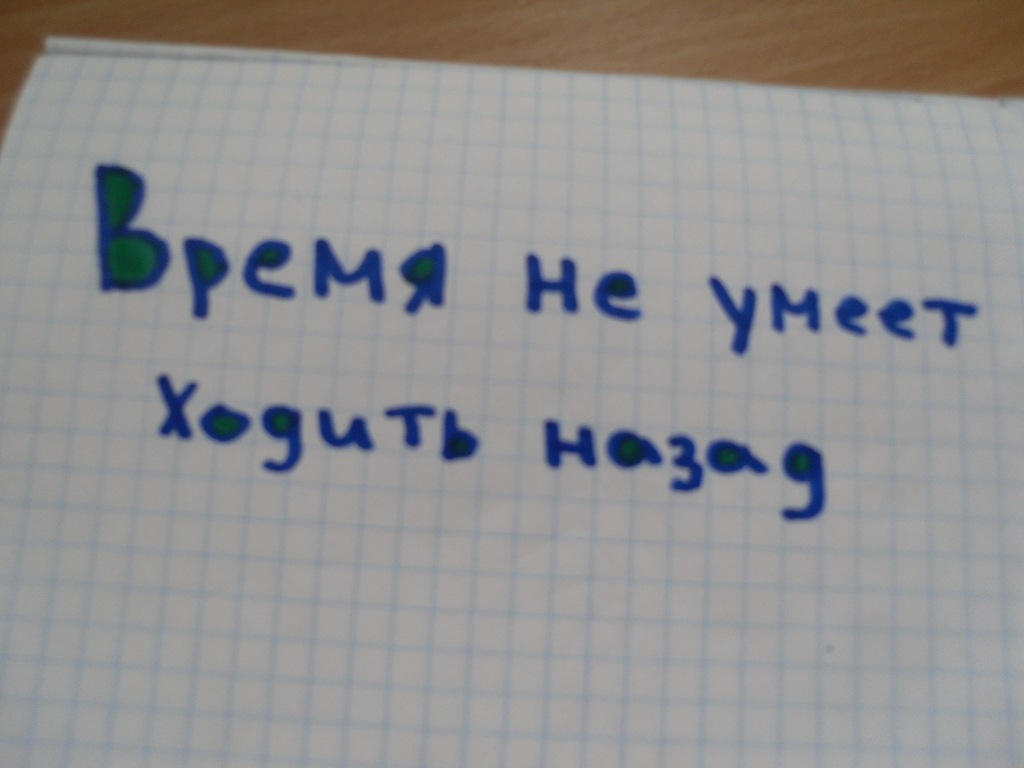 Время не умеет
ходить назад